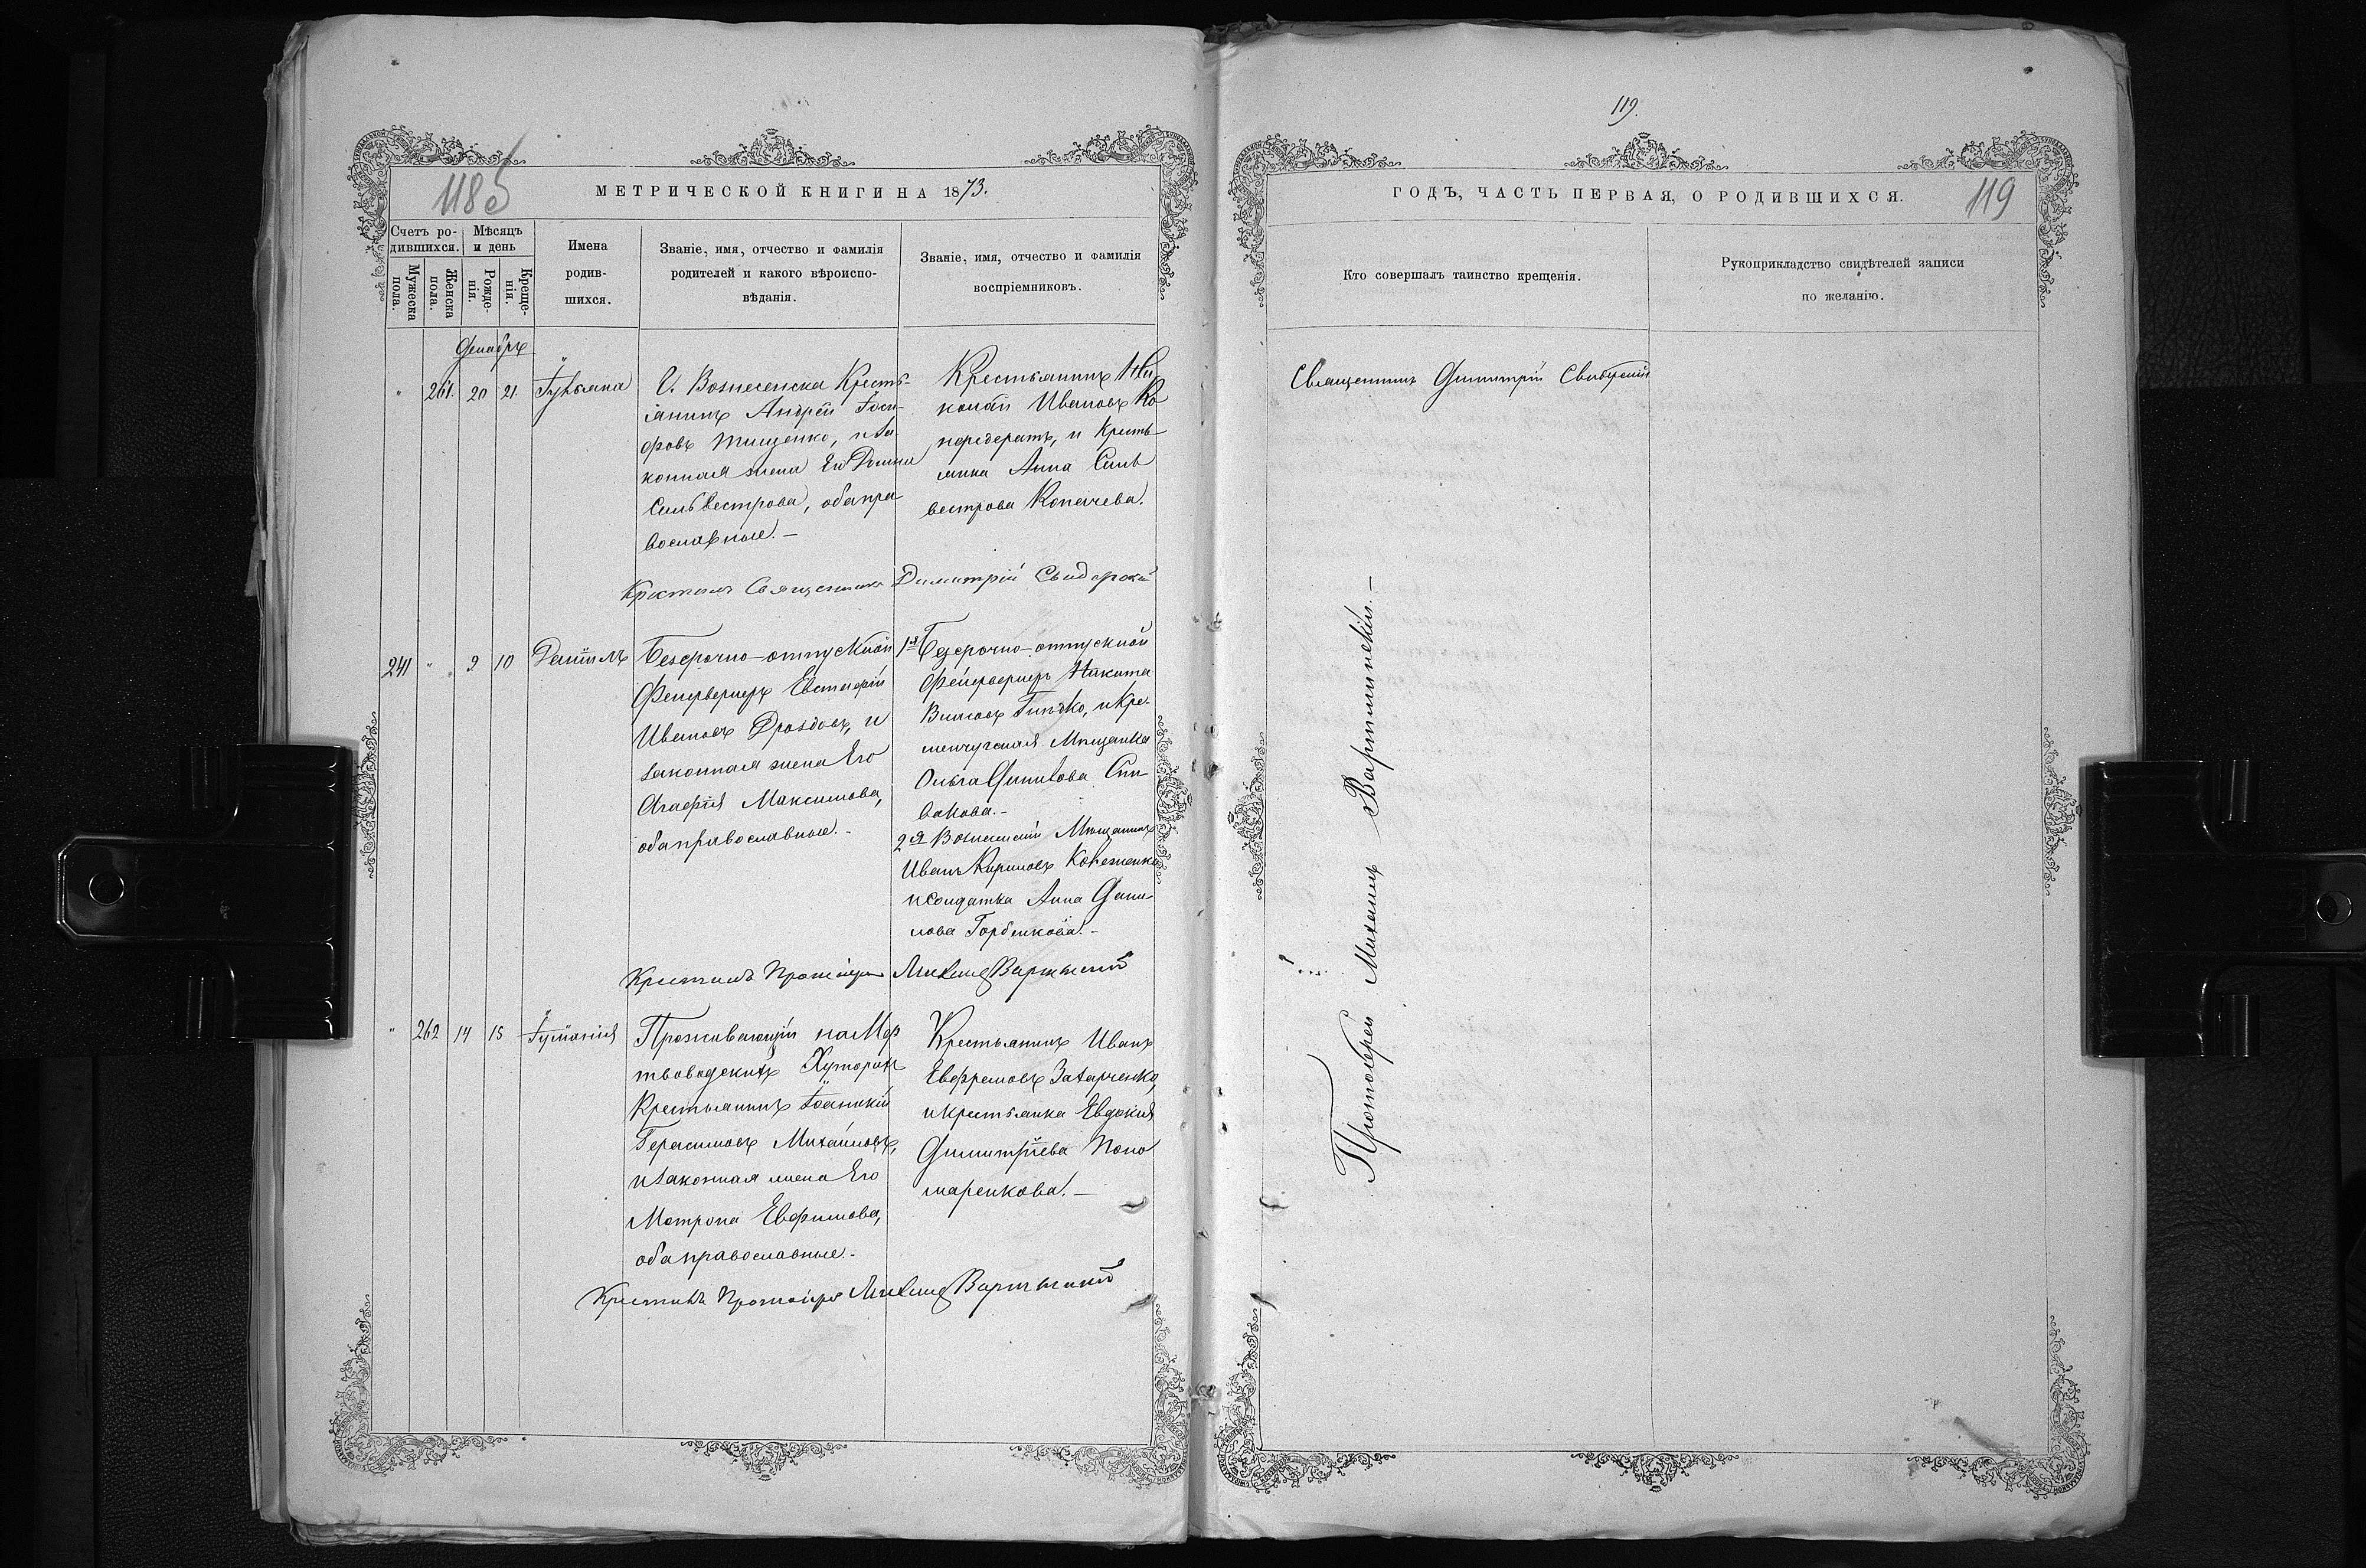 118б
МЕТРИЧЕСКОЙ КНИГИ НА 1873.
Счетъ ро-
дившихся.
Мѣсяцъ
и день
Мужеска
пола.
Женска
пола.
Рожде-
нія.
Креще-
нія.
Имена
родив-
шихся.
Званіе, имя, отчество и фамилія
родителей и какого вѣроиспо-
вѣданія.
Званіе, имя, отчество и фамилія
воспріемниковъ.
Декабрь
" 261. 20 21. Іуліана
Г. Вознесенска Кресть-
янинъ Андрей Іоси-
фовъ Тищенко, и за-
конная жена Его
Сильвестрова, оба пра
вославные. —
Крестьянинъ Ни
колай Ивановъ Ко
и Кресть
янка Анна Силь
вестрова Копачева.
Крестилъ Священникъ Димитрій Свидерскій
241 " 9 10 Даніилъ
Безсрочно-отпускной
Фейерверкеръ Евстафій
Ивановъ Дроздовъ, и
законная жена Его
Агафія Максимова,
оба православные. -
1я Безсрочно-отпускной
Фейерверкеръ Никита
и Кре-
менчугская Мѣщанка
Ольга Спи
вакова. -
2я Вознесенскій Мѣщанинъ
Иванъ Кириловъ
и Солдатка Анна Дани
лова Горбенкова. -
Крестилъ Протоіерей Михаилъ
" 262 14 15 Іуліанія
Проживающій на Мер
твоводскихъ Хуторахъ
Крестьянинъ Іоанникій
Герасимовъ Михайловъ,
и законная жена Его
Матрона Евфимова,
оба православные -
Крестьянинъ Иванъ
Евфремовъ Захарченко,
и крестьянка Евдокія
Димитріева Поно
маренкова. —
Крестилъ Протоіерей Михаилъ
119.
ГОДЪ, ЧАСТЬ ПЕРВАЯ, О РОДИВШИХСЯ.
119
Кто совершалъ таинство крещенія.
Рукоприкладство свидѣтелей записи
по желанію.
Священникъ Димитрій Свидерскій
Протоіерей Михаилъ